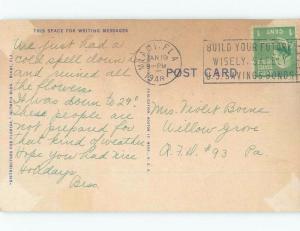 THIS SPACE FOR WRITING MESSAGES
We just had a
cold spell down here
and ruined all
the flowers.
It was down to 29°.
These people are
not prepared for
that kind of weather.
Hope you had nice
Holidays.
Bess.
MIAMI, FLA.
JAN 19
9-PM
1948
BUILD YOUR FUTURE
WISELY, SAFELY
U.S. SAVINGS BONDS
1 CENT
POST CARD
Mrs. Violet Borne
Willow Grove
R.F.D. #93 Pa